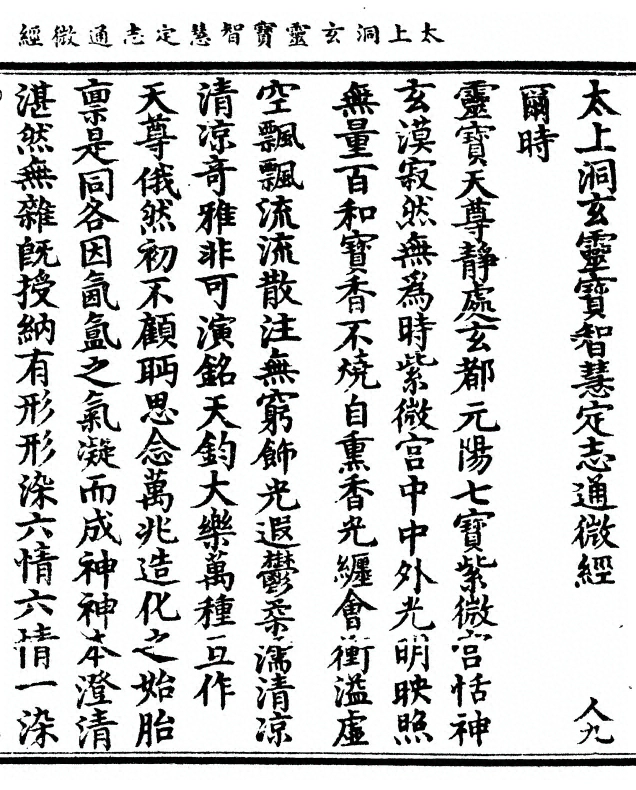 太上洞玄靈寶智慧定志通微經
太上洞玄靈寶智慧定志通微經 人九
爾時
靈寶天尊靜處玄都元陽七寶紫微宮恬神
玄漠寂然無爲時紫微宮中中外光明映照
無量百和寶香不燒自熏香光纏會衝溢虛
空飄飄流流散注無窮飾光遐鬱柔濡清凉
清凉奇雅非可演銘天鈞大樂萬種互作
天尊俄然初不顧眄思念萬兆造化之始胎
禀是同各因氤氳之氣凝而成神神本澄清
湛然無雜旣授納有形形染六情六情一染